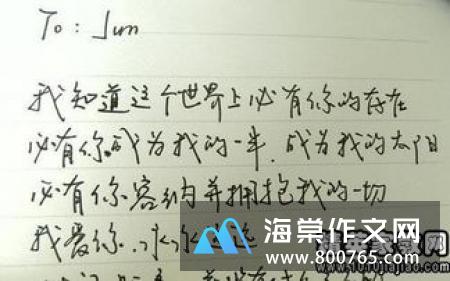 To: Jun
我知道这个世界上必有你的存在
必有你成为我的一半.成为我的太阳
必有你容纳并拥抱我的一切
我爱你..永永远远
海棠作文网
www.800765.com